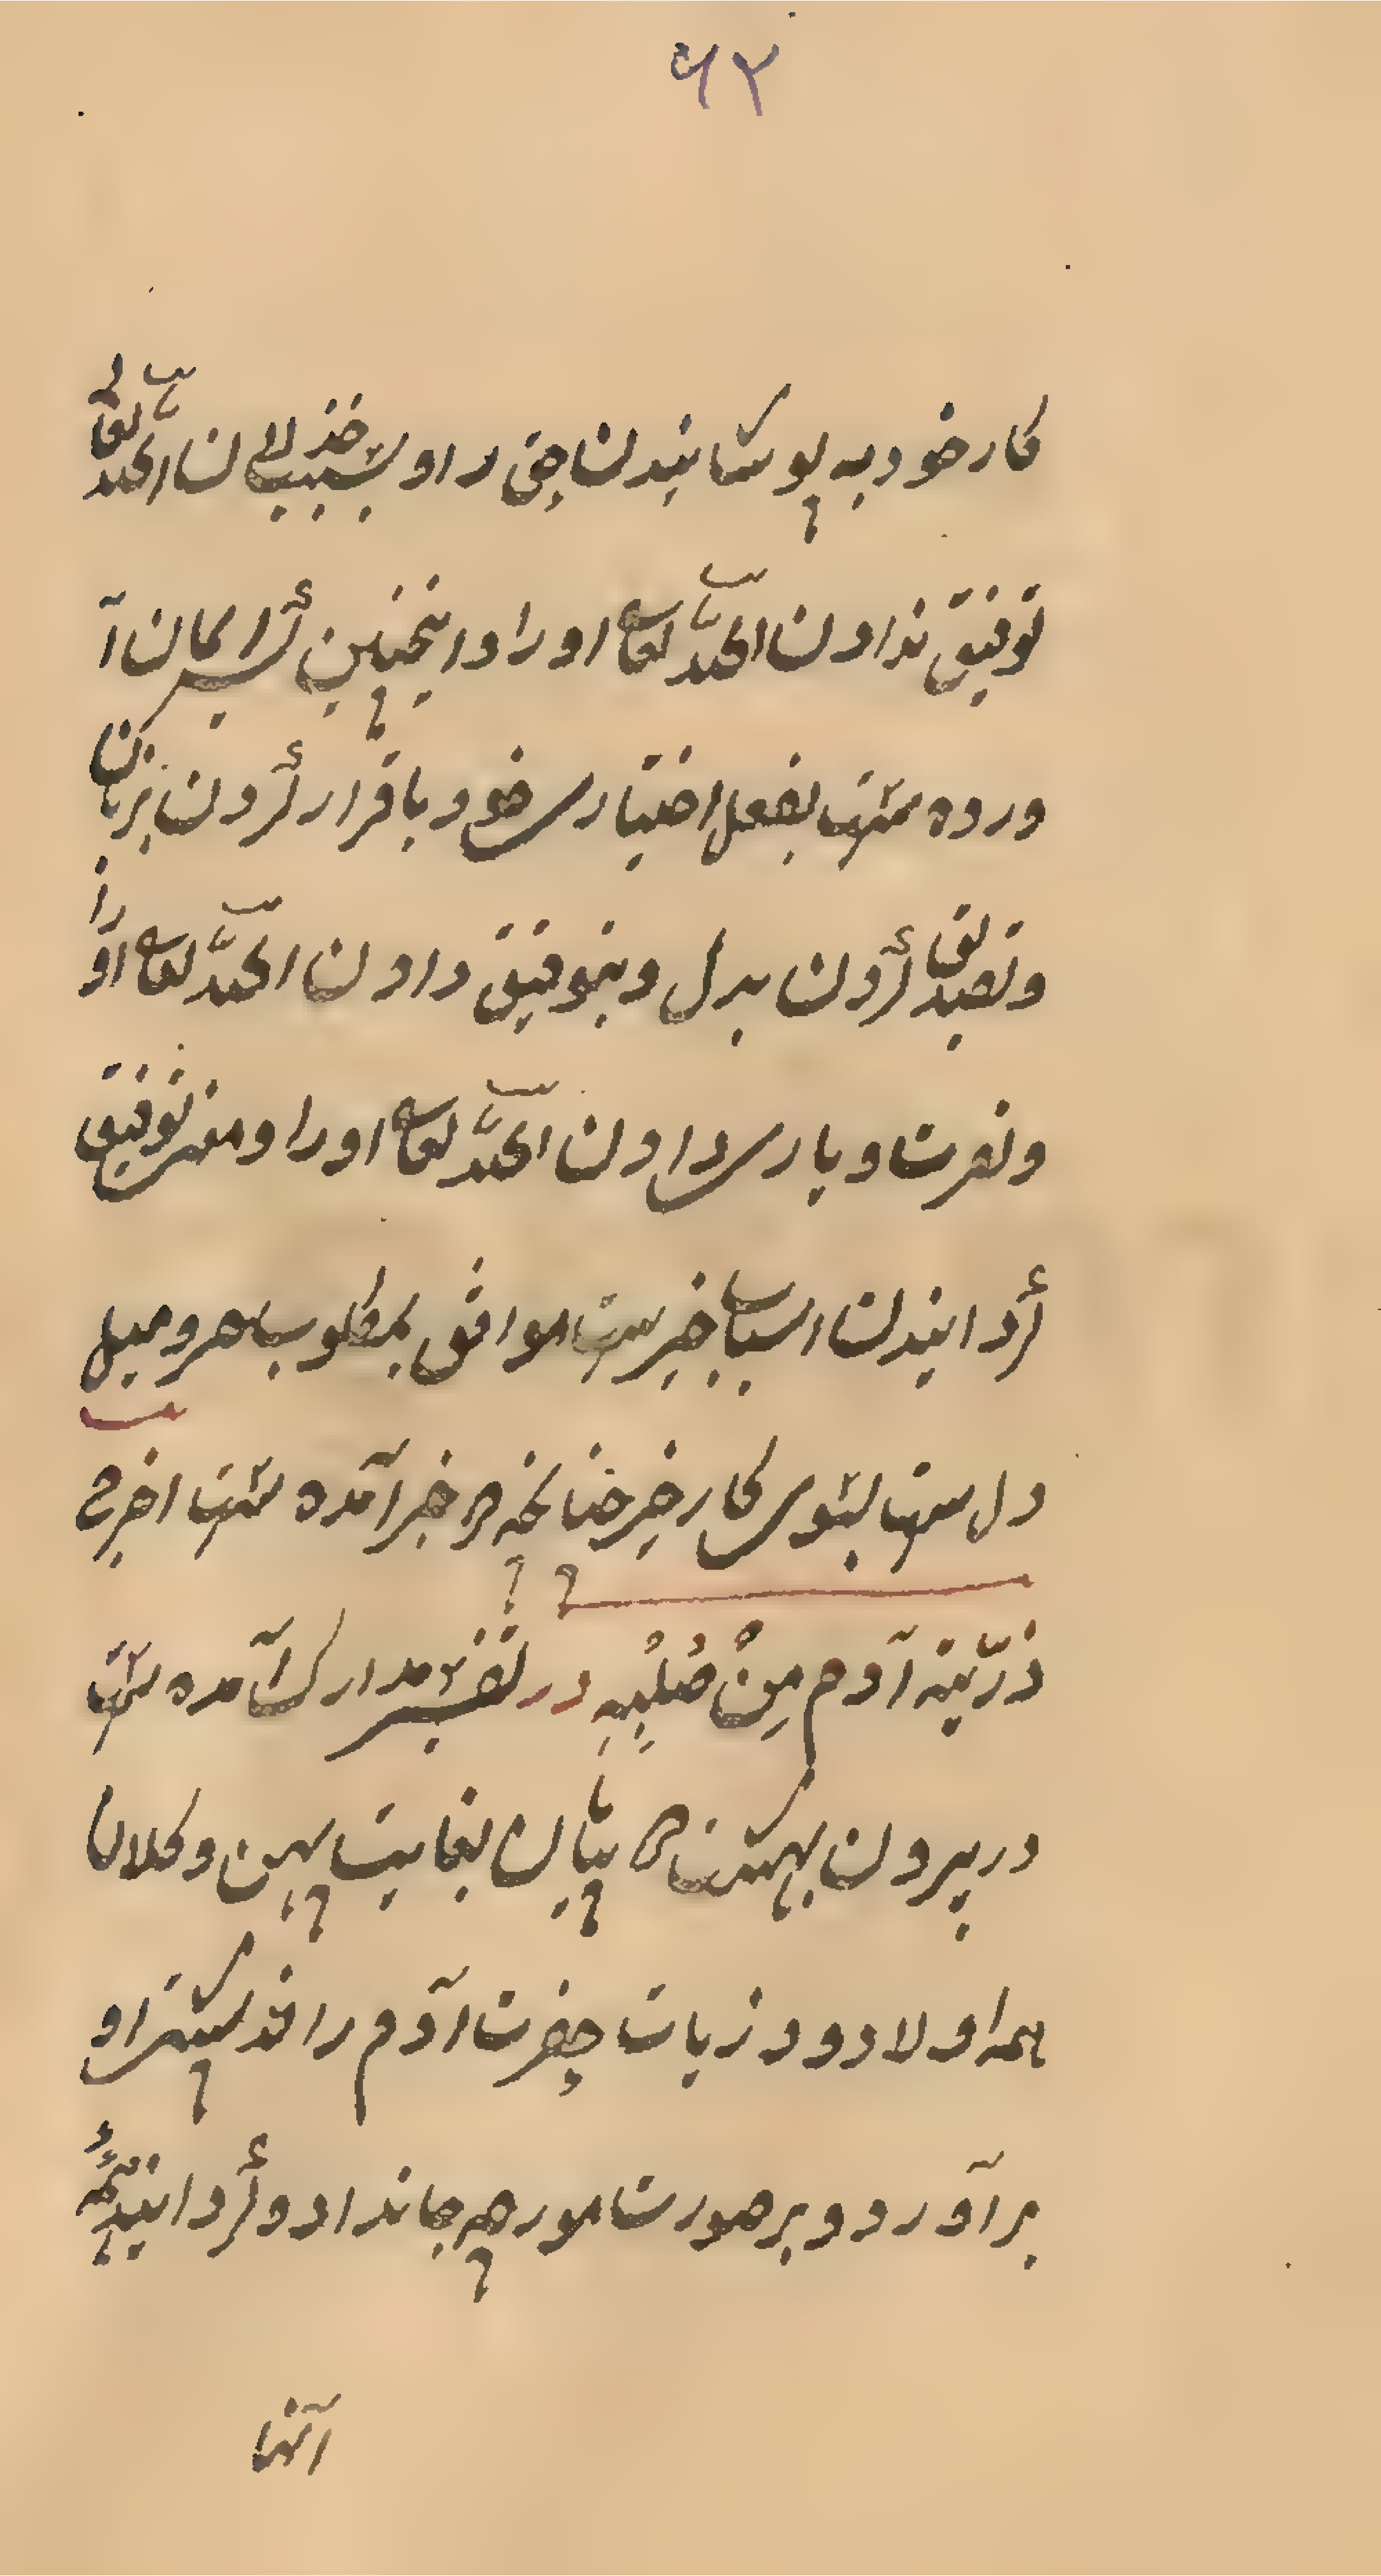 ۶۳
کار خود بہ پوشانیدن حق را و بسبب خذلان اللہ تعالی
توفیق ندادن اللہ تعالی او را و اینچنین کسی ایمان آ
ورده است بفعل اختیاری خود باقرار کردن بزبان
وتصدیق کردن بدل و بتوفیق دادن اللہ تعالی او را
ونصرت و یاری دادن اللہ تعالی او را و معنی توفیق
گردانیدن اسباب خیر است موافق بمطلوب هر و میل
دل است بسوی کار خیر چنانچہ در خبر آمده است اخرج
ذرّیة آدم مِنْ صُلْبِهِ در تفسیر مدارک آمده است
در بیرون بهشت میان بغایت پہن و کلان
ہمہ اولاد و ذریات حضرت آدم را از پشت او
بر آورد و بر صورت مورچہ جان داد و گردانید ہمہ
آنها